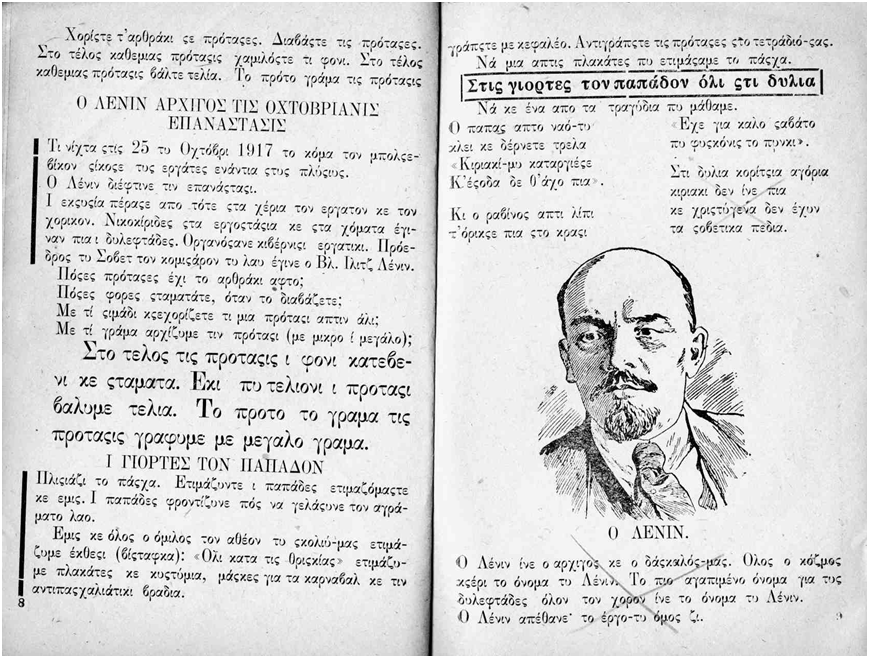 Χορίςτε τ'αρθράκι ςε πρόταςες. Διαβάςτε τις πρόταςες.
Στο τέλος καθεμιας πρόταςις χαμιλόςτε τι φονι. Στο τέλος
καθεμιας πρόταςις βάλτε τελία. Το πρότο γράμα τις πρόταςις
Ο ΛΕΝΙΝ ΑΡΧΙΓΟΣ ΤΙΣ ΟΧΤΟΒΡΙΑΝΙΣ
ΕΠΑΝΑΣΤΑΣΙΣ
Τι νίχτα ςτίς 25 τυ Οχτόβρι 1917 το κόμα τον μπολςε-
βίκον ςίκοςε τυς εργάτες ενάντια ςτυς πλύςιυς.
Ο Λένιν διέφτινε τιν επανάςταςι.
Ι εκςυςία πέραςε απο τότε ςτα χέρια τον εργατον κε τον
χορικον. Νικοκίριδες ςτα εργοςτάςια κε ςτα χόματα έγι-
ναν πια ι δυλεφτάδες. Οργανόςανε κιβέρνιςι εργατικι. Πρόε-
δρος τυ Σοβετ τον κομιςάρον τυ λαυ έγινε ο Βλ. Ιλιτζ Λένιν.
Πόςες πρόταςες έχι το αρθράκι αφτο;
Πόςες φορες ςταματάτε, όταν το διαβάζετε;
Με τί ςιμάδι κςεχορίζετε τι μια πρόταςι απτιν άλι;
Με τί γράμα αρχίζυμε τιν πρόταςι (με μικρο ί μεγάλο);
Στο τελος τις προταςις ι φονι κατεβε-
νι κε ςταματα. Εκι πυ τελιονι ι προταςι
βαλυμε τελια. Το προτο το γραμα τις
προταςις γραφυμε με μεγαλο γραμα.
Ι ΓΙΟΡΤΕΣ ΤΟΝ ΠΑΠΑΔΟΝ
Πλιςιάζι το πάςχα. Ετιμάζυντε ι παπάδες ετιμαζόμαςτε
κε εμις. Ι παπάδες φροντίζυνε πός να γελάςυνε τον αγρά-
ματο λαο.
Εμις κε όλος ο όμιλος τον αθέον τυ ςκολιύ-μας ετιμά-
ζυμε έκθεςι (βίςταφκα): «Όλι κατα τις θριςκίας» ετιμάζυ-
με πλακάτες κε κυςτύμια, μάςκες για τα καρναβαλ κε τιν
αντιπαςχαλιάτικι βραδια.
8
γράπςτε με κεφαλέο. Αντιγράπςτε τις πρόταςες ςτο τετράδιό-ςας.
Νά μια απτις πλακάτες πυ ετιμάςαμε το πάςχα.
Στις γιορτες τον παπάδον όλι ςτι δυλια
Νά κε ένα απο τα τραγύδια πυ μάθαμε.
Ο παπας απτο ναό-τυ
κλει κε δέρνετε τρελα
«Κιριακί-μυ καταργιέςε
Κ'έςοδα δε θ'άχο πια».
Κι ο ραβίνος απτι λίπι
τ'όρικςε πια ςτο κραςι
«Έχε για καλο ςαβάτο
πυ φυςκόνις το πυνκι».
Στι δυλια κορίτςια αγόρια
κιριακι δεν ίνε πια
κε χριςτύγενα δεν έχυν
τα ςοβετικα πεδια.
Ο ΛΕΝΙΝ.
Ο Λένιν ίνε ο αρχιγος κε ο δάςκαλός-μας. Όλος ο κόζμος
κςέρι το όνομα τυ Λένιν. Το πιο αγαπιμένο όνομα για τυς
δυλεφτάδες όλον τον χορον ίνε το όνομα τυ Λένιν.
Ο Λένιν απέθανε· το έργο-τυ όμος ζι.
9